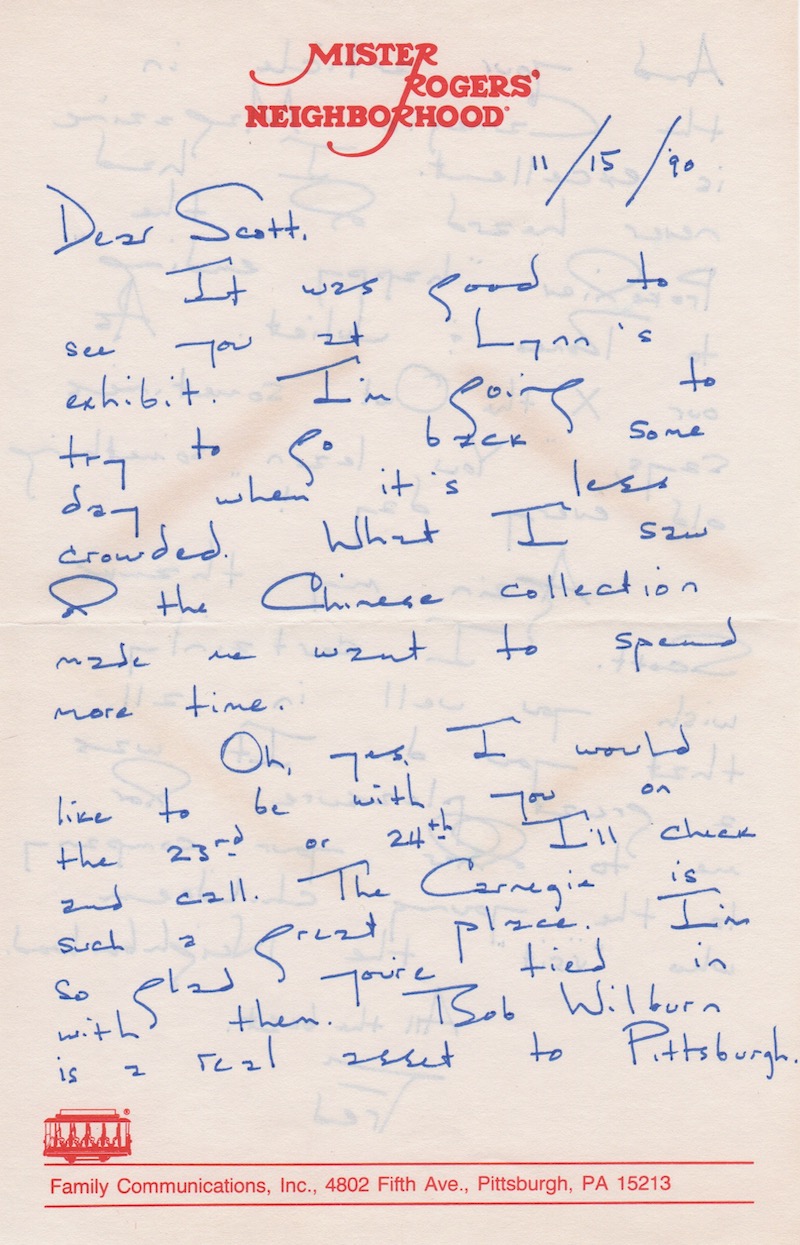 MISTER
ROGERS'
NEIGHBORHOOD®
11/15/90
Dear Scott,
It was good to
see you at Lynn's
exhibit. I'm going to
try to go back some
day when it's less
crowded. What I saw
of the Chinese collection
made me want to spend
more time.
Oh, yes, I would
like to be with you on
the 23rd or 24th I'll check
and call. The Carnegie is
such a great place. I'm
so glad you're tied in
with them. Bob Wilburn
is a real asset to Pittsburgh.
®
Family Communications, Inc., 4802 Fifth Ave., Pittsburgh, PA 15213